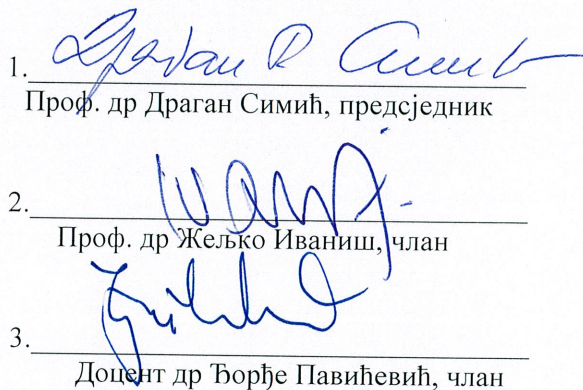 1.
Проф. др Драган Симић, предсједник
2.
Проф. др Жељко Иваниш, члан
3.
Доцент др Ђорђе Павићевић, члан